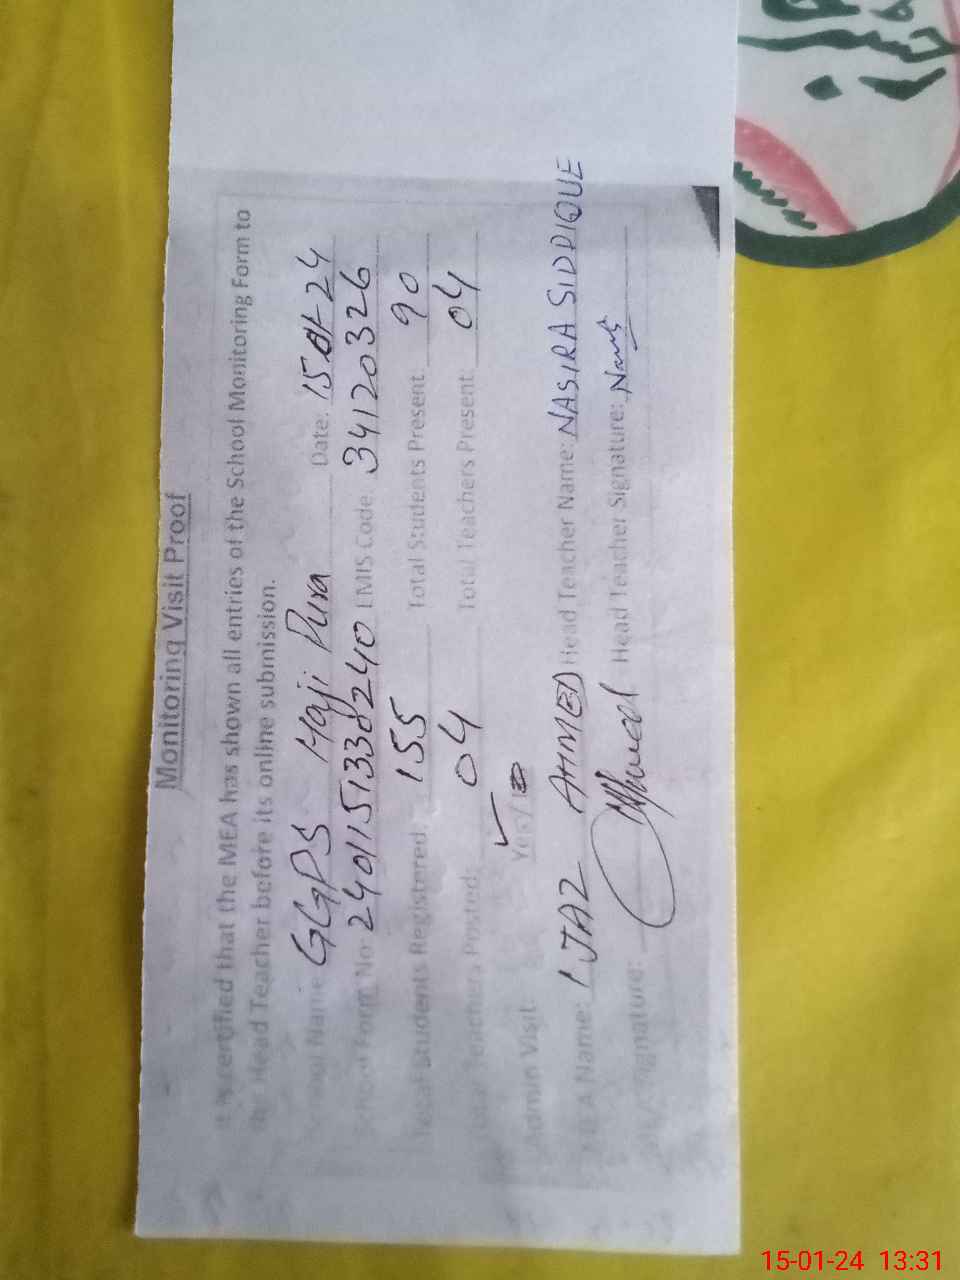 Monitoring Visit Proof
It is certified that the MEA has shown all entries of the School Monitoring Form to
the Head Teacher before its online submission.
School Name: GGPS Haji Pura Date: 15-01-24
School Form No: 2401151330240 EMIS Code: 34120326
Total Students Registered: 155 Total Students Present: 90
Total Teachers Posted: 04 Total Teachers Present: 04
Admin Visit: Yes/
MEA Name: IJAZ AHMED Head Teacher Name: NASIRA SIDDIQUE
MEA Signature: Ahmed Head Teacher Signature:
15-01-24 13:31